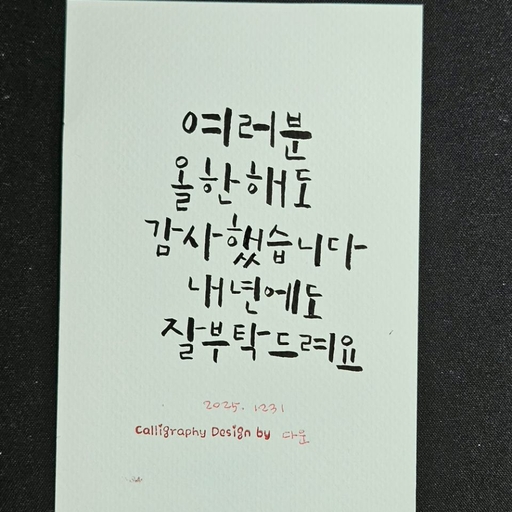 여러분
올 한 해도
감사했습니다
내년에도
잘 부탁드려요
2025. 1231
Calligraphy Design by 다온